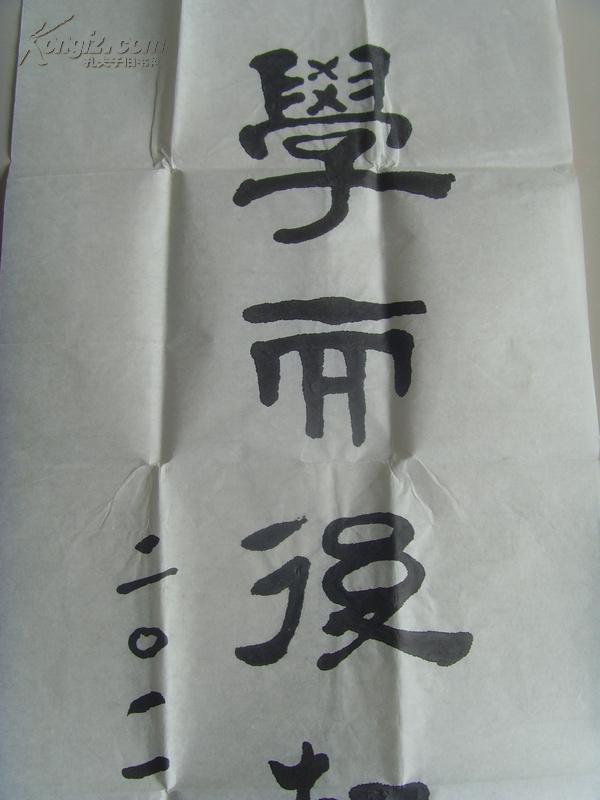 學而後
二〇一一
Kongfz.com
孔夫子旧书网